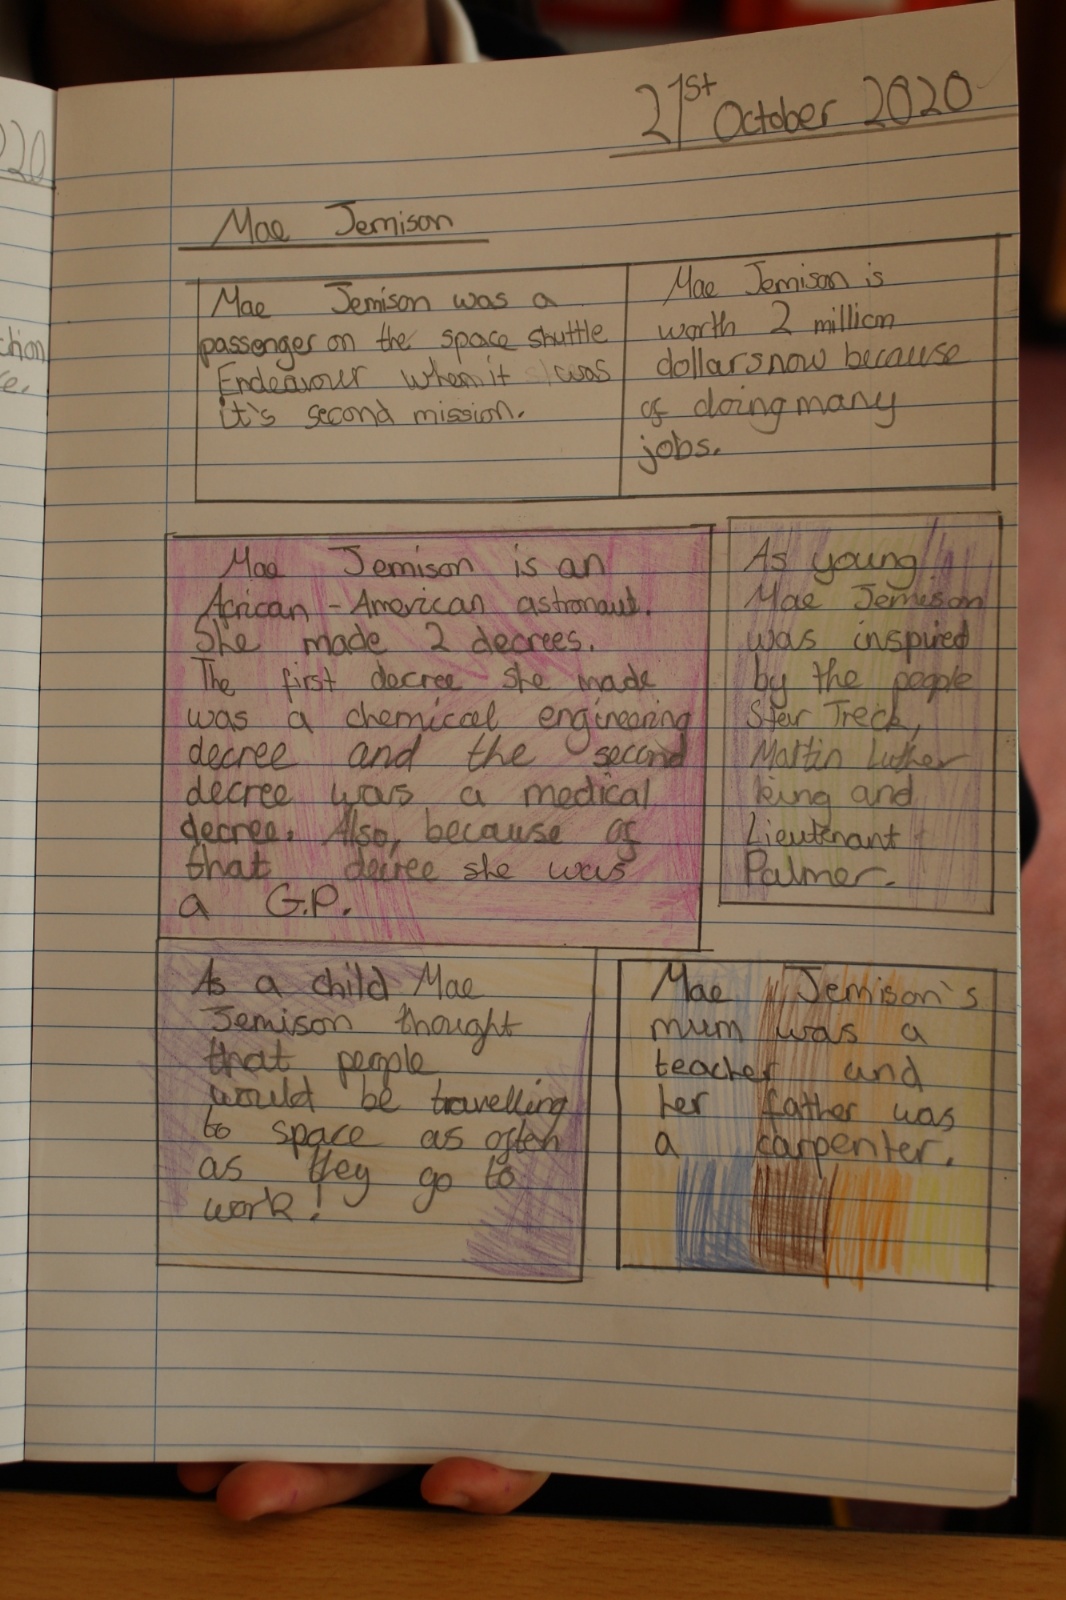 21st October 2020
Mae Jemison
Mae Jemison was a
passenger on the space shuttle
Endeavour when it was
it's second mission.
Mae Jemison is
worth 2 million
dollars now because
of doing many
jobs.
Mae Jemison is an
African-American astronaut.
She made 2 decrees.
The first decree she made
was a chemical engineering
decree and the second
decree was a medical
decree. Also, because of
that decree she was
a G.P.
As young
Mae Jemison
was inspired
by the people
Star Treck,
Martin Luther
king and
Lieutenant
Palmer.
As a child Mae
Jemison thought
that people
would be travelling
to space as often
as they go to
work!
Mae Jemison's
mum was a
teacher and
her father was
a carpenter.